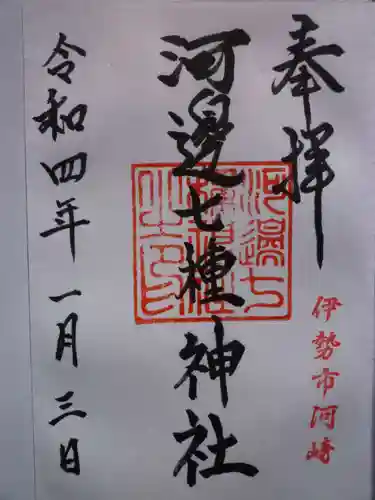 奉拝
伊勢市河崎
河邊七種神社
令和四年一月三日